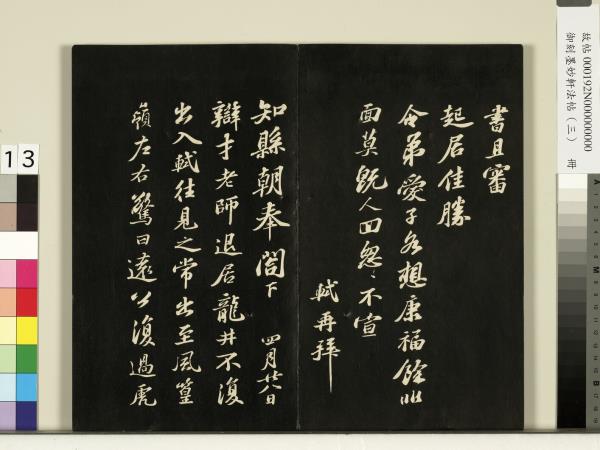 故帖 000192N000000000
御刻墨妙軒法帖（三） 冊
書且審
起居佳勝
令弟愛子各想康福餘非
面莫既人回怱〻不宣
軾再拜
知縣朝奉閤下 四月廿八日
辯才老師退居龍井不復
出入軾往見之常出至風篁
嶺左右驚曰遠公復過虎
13